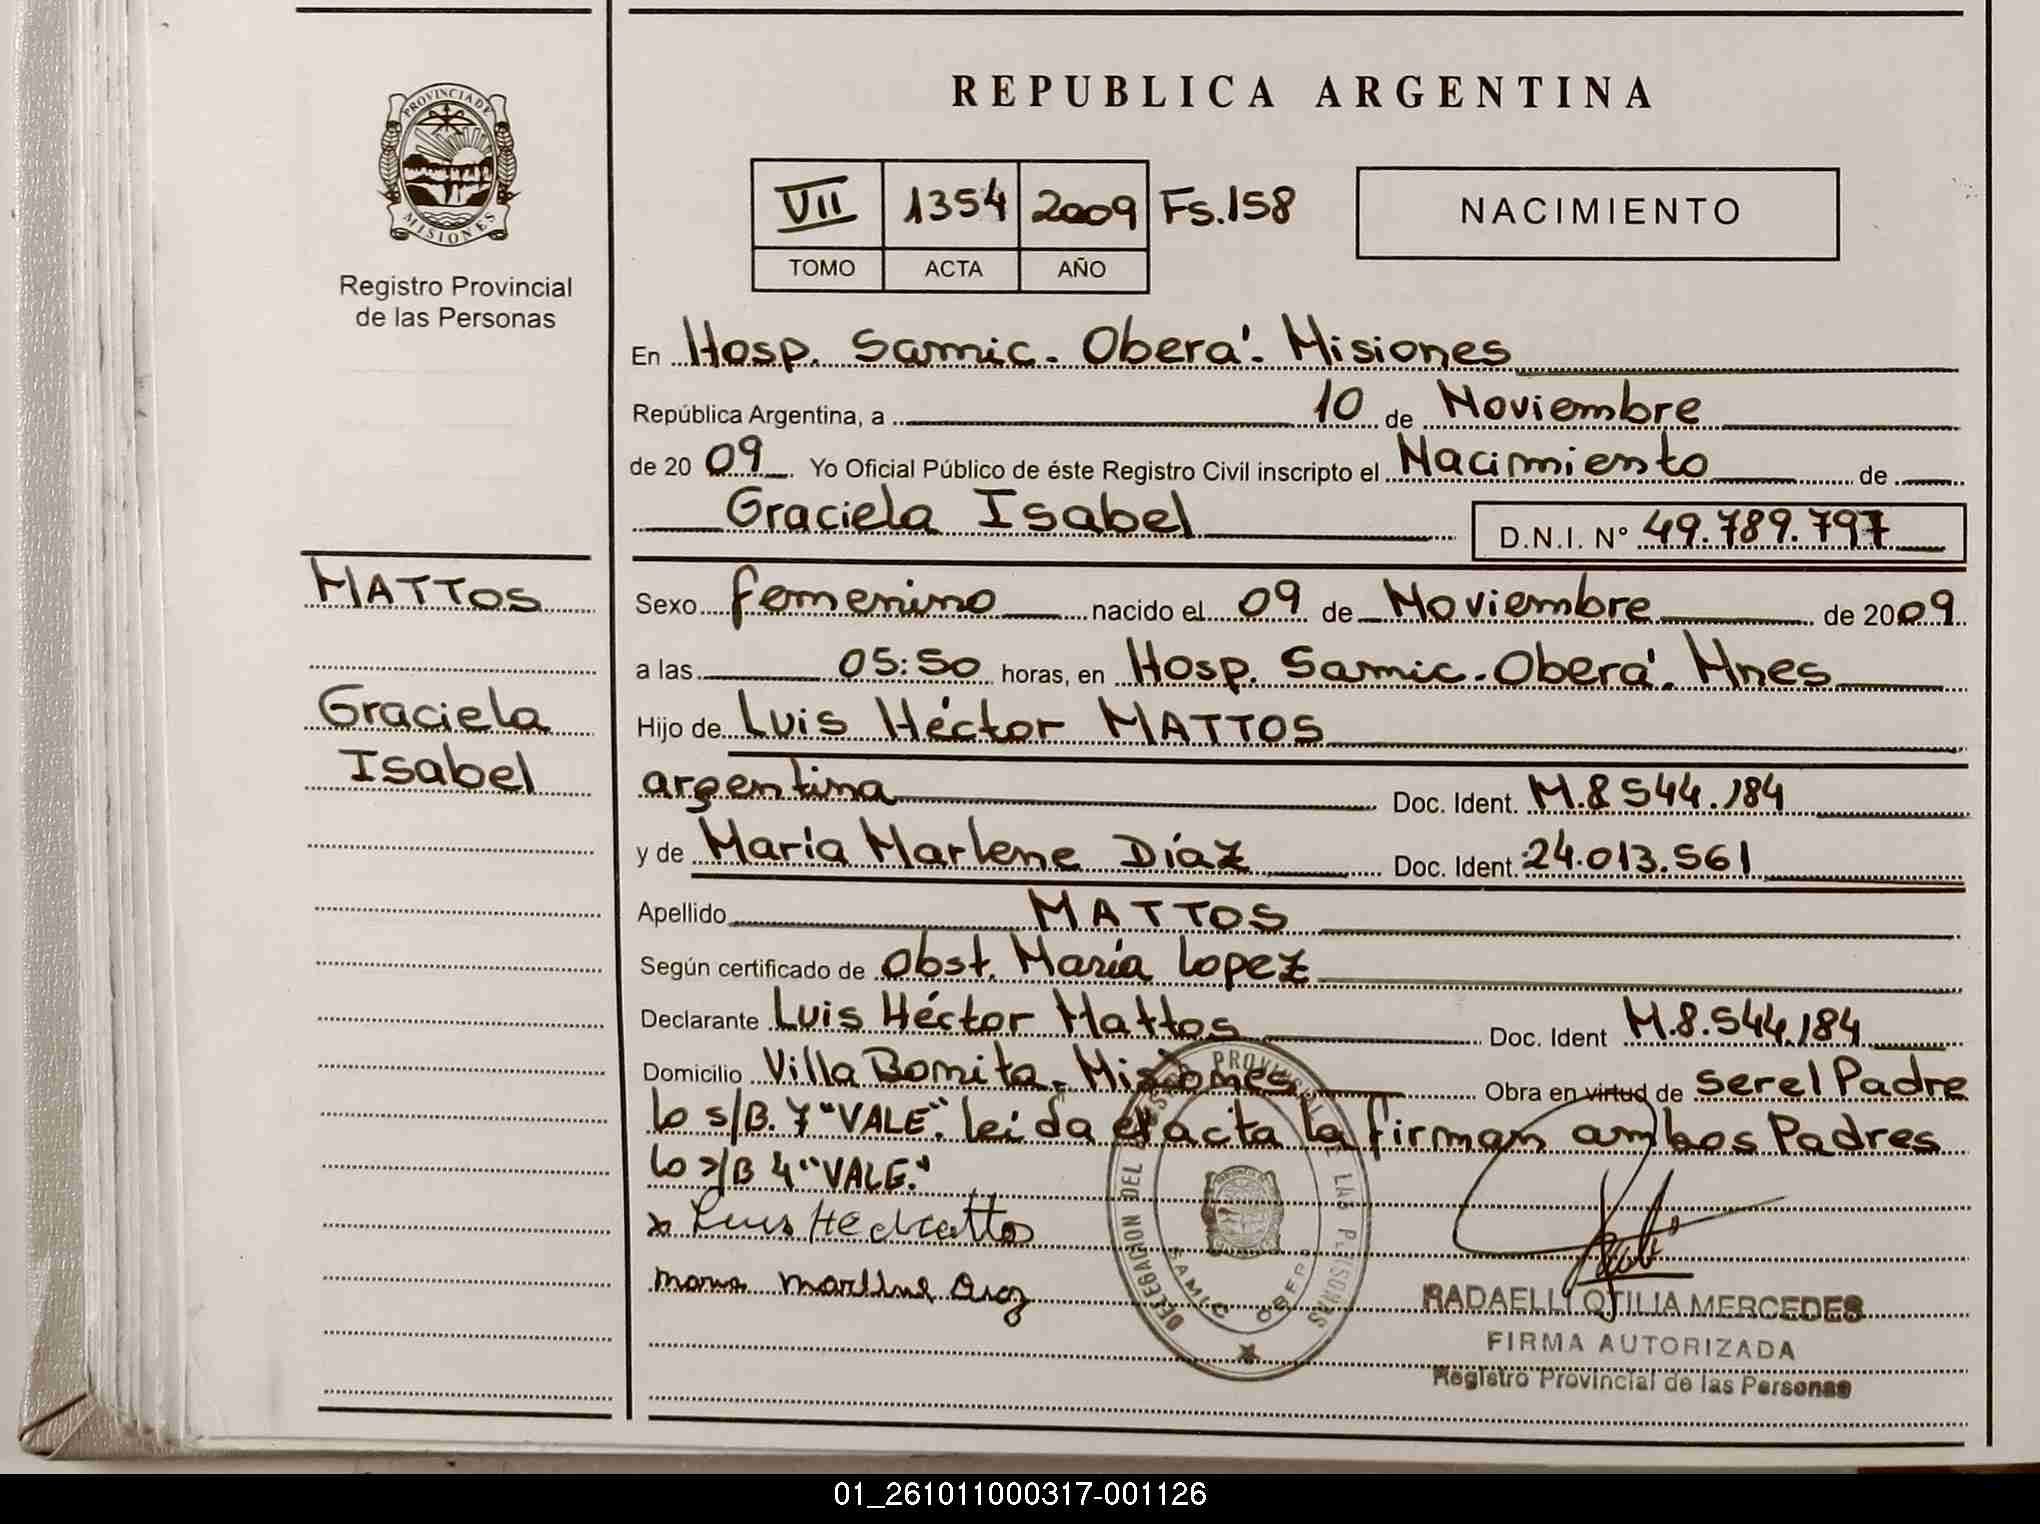 REPUBLICA ARGENTINA
PROVINCIA DE
MISIONES
Registro Provincial
de las Personas
VII 1354 2009 Fs.158
TOMO ACTA AÑO
NACIMIENTO
En Hosp. Samic. Oberá. Misiones
República Argentina, a 10 de Noviembre
de 20 09 Yo Oficial Público de éste Registro Civil inscripto el Nacimiento de
Graciela Isabel D.N.I. N° 49.789.797
MATTOS
Graciela
Isabel
Sexo femenino nacido el 09 de Noviembre de 2009
a las 05:50 horas, en Hosp. Samic. Oberá. Mnes
Hijo de Luis Héctor MATTOS
argentina Doc. Ident. M.8 544.184
y de María Marlene Díaz Doc. Ident. 24.013.561
Apellido MATTOS
Según certificado de Obst. María Lopez
Declarante Luis Héctor Mattos Doc. Ident M.8.544.184
Domicilio Villa Bonita. Misiones Obra en virtud de ser el Padre
lo s/B. 7 "VALE". leida el acta la firman ambos Padres
lo s/B 4 "VALE."
DELEGACION DEL REGISTRO PROVINCIAL DE LAS PERSONAS
SAMIC OBERA
RADAELLI OTILIA MERCEDES
FIRMA AUTORIZADA
Registro Provincial de las Personas
01_261011000317-001126